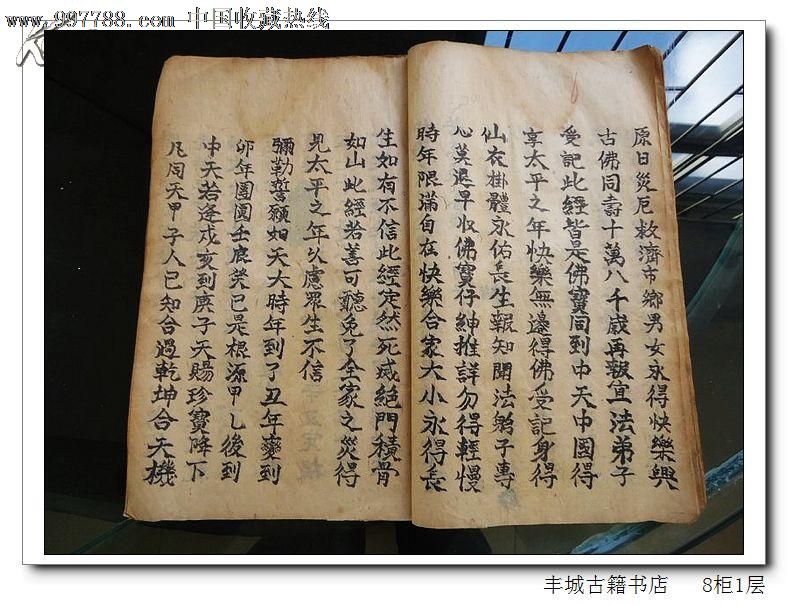 www.997788.com 中国收藏热线
原日災厄救濟市鄉男女永得快樂與
古佛同壽十萬八千歲再報宜法弟子
受記此經皆是佛寶同到中天中國得
享太平之年快樂無邊得佛受記身得
仙衣掛體永佑長生報知聞法弟子專
心莫遲早收佛寶仔紳推詳勿得輕慢
時年限滿自在快樂合家大小永得長
生如有不信此經定然死滅絕門積骨
如山此經若善可聽免了全家之災得
見太平之年以慮眾生不信
彌勒誓願如天大時年到了丑年變到
卯年團圓壬辰癸巳是根源甲乙後到
中天若逢戌亥到庚子天賜珍寶降下
凡同天甲子人已知合過乾坤合天機
丰城古籍书店 8柜1层